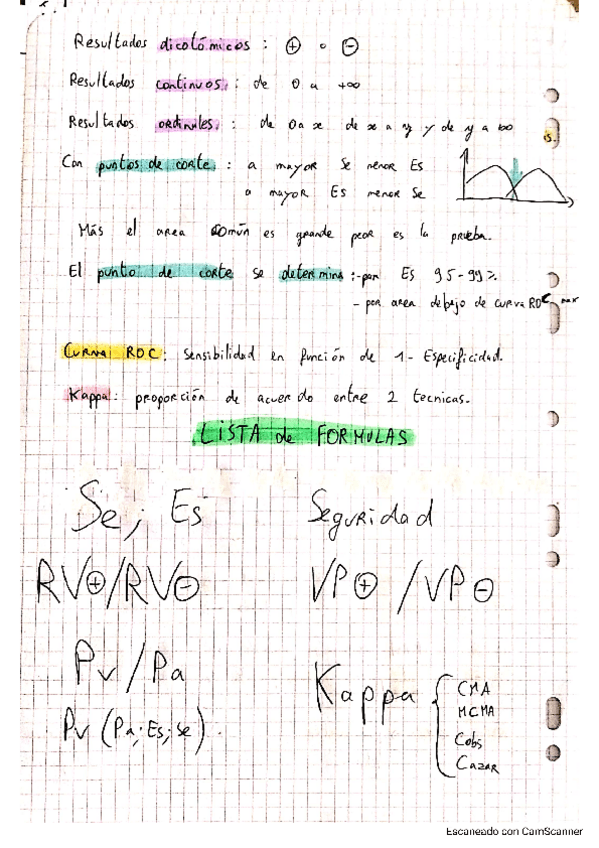 Resultados dicotómicos : ⊕ o ⊖
Resultados continuos : de 0 a +∞
Resultados ordinales : de 0 a x de x a y y de y a ∞
Con puntos de corte : a mayor Se menor Es
a mayor Es menor Se
Más el area común es grande peor es la prueba.
El punto de corte se determina :- por Es 95-99%
- por area debajo de curva ROC max
Curva ROC : sensibilidad en función de 1 - Especificidad.
Kappa : proporción de acuerdo entre 2 tecnicas.
LISTA de FORMULAS
Se ; Es
Seguridad
RV⊕/RV⊖
VP⊕ / VP⊖
Pv / Pa
Kappa { CMA
MCMA
Cobs
Cazar
Pv (Pa; Es; Se)
Escaneado con CamScanner